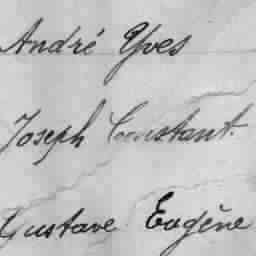 André Yves
Joseph Constant.
Gustave Eugène